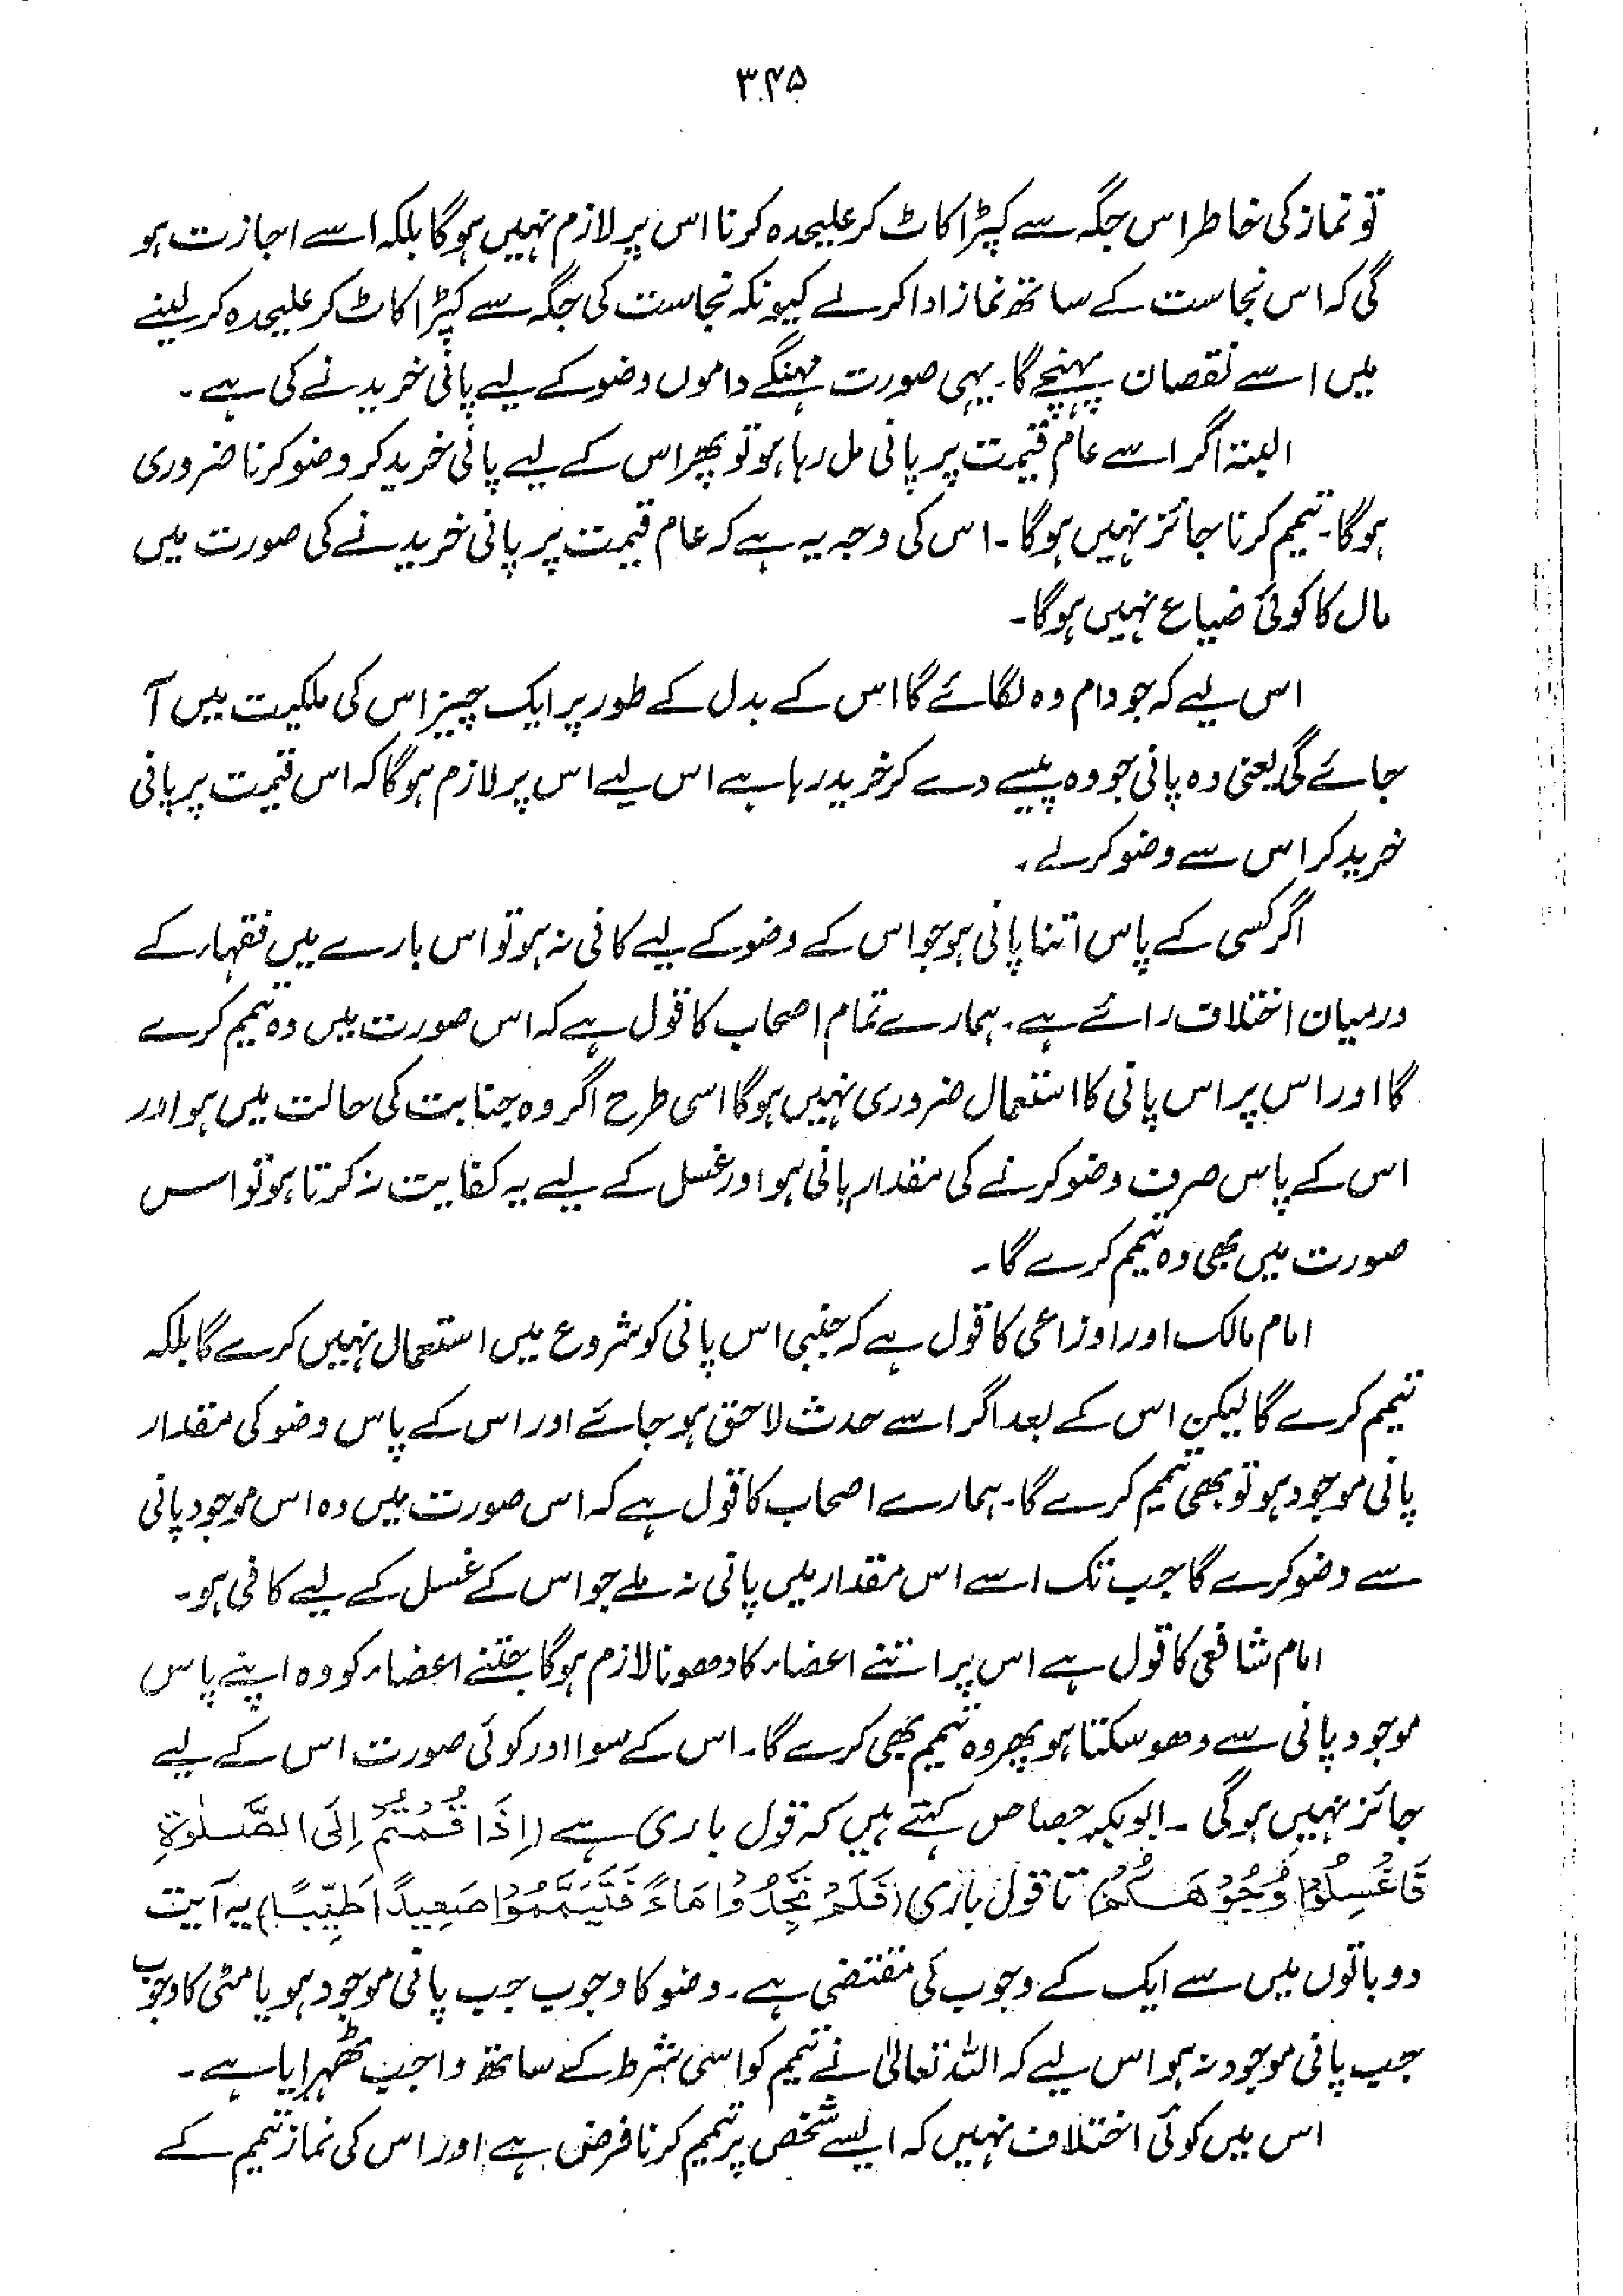 ۳۴۵
تو نماز کی خاطر اس جگہ سے کپڑا کاٹ کر علیحدہ کرنا اس پر لازم نہیں ہوگا بلکہ اسے اجازت ہو
گی کہ اس نجاست کے ساتھ نماز ادا کرلے کیونکہ نجاست کی جگہ سے کپڑا کاٹ کر علیحدہ کر لینے
میں اسے نقصان پہنچے گا۔ یہی صورت مہنگے داموں وضو کے لیے پانی خریدنے کی ہے۔
البتہ اگر اسے عام قیمت پر پانی مل رہا ہو تو پھر اس کے لیے پانی خرید کر وضو کرنا ضروری
ہوگا۔ تیمم کرنا جائز نہیں ہوگا۔ اس کی وجہ یہ ہے کہ عام قیمت پر پانی خریدنے کی صورت میں
مال کا کوئی ضیاع نہیں ہوگا۔
اس لیے کہ جو دام وہ لگائے گا اس کے بدل کے طور پر ایک چیز اس کی ملکیت میں آ
جائے گی یعنی وہ پانی جو وہ پیسے دے کر خرید رہا ہے اس لیے اس پر لازم ہوگا کہ اس قیمت پر پانی
خرید کر اس سے وضو کرلے۔
اگر کسی کے پاس اتنا پانی ہو جو اس کے وضو کے لیے کافی نہ ہو تو اس بارے میں فقہاء کے
درمیان اختلاف رائے ہے۔ ہمارے تمام اصحاب کا قول ہے کہ اس صورت میں وہ تیمم کرے
گا اور اس پر اس پانی کا استعمال ضروری نہیں ہوگا اسی طرح اگر وہ جنابت کی حالت میں ہو اور
اس کے پاس صرف وضو کرنے کی مقدار پانی ہو اور غسل کے لیے یہ کفایت نہ کرتا ہو تو اس
صورت میں بھی وہ تیمم کرے گا۔
امام مالک اور اوزاعی کا قول ہے کہ جنبی اس پانی کو شروع میں استعمال نہیں کرے گا بلکہ
تیمم کرے گا لیکن اس کے بعد اگر اسے حدث لاحق ہو جائے اور اس کے پاس وضو کی مقدار
پانی موجود ہو تو بھی تیمم کرے گا۔ ہمارے اصحاب کا قول ہے کہ اس صورت میں وہ اس موجود پانی
سے وضو کرے گا جب تک اسے اس مقدار میں پانی نہ ملے جو اس کے غسل کے لیے کافی ہو۔
امام شافعی کا قول ہے اس پر اتنے اعضاء کا دھونا لازم ہوگا جتنے اعضاء کو وہ اپنے پاس
موجود پانی سے دھو سکتا ہو پھر وہ تیمم بھی کرے گا۔ اس کے سوا اور کوئی صورت اس کے لیے
جائز نہیں ہوگی۔ ابوبکر جصاص کہتے ہیں کہ قول باری ہے (اِذَا قُمْتُمْ اِلَی الصَّلٰوۃِ
فَاغْسِلُوْا وُجُوْھَکُمْ) تا قول باری (فَلَمْ تَجِدُوْا مَاءً فَتَیَمَّمُوْا صَعِیدًا طَیِّبًا) یہ آیت
دو باتوں میں سے ایک کے وجوب کی مقتضی ہے۔ وضو کا وجوب جب پانی موجود ہو یا مٹی کا وجوب
جب پانی موجود نہ ہو اس لیے کہ اللہ تعالیٰ نے تیمم کو اسی شرط کے ساتھ واجب ٹھہرایا ہے۔
اس میں کوئی اختلاف نہیں کہ ایسے شخص پر تیمم کرنا فرض ہے اور اس کی نماز تیمم کے